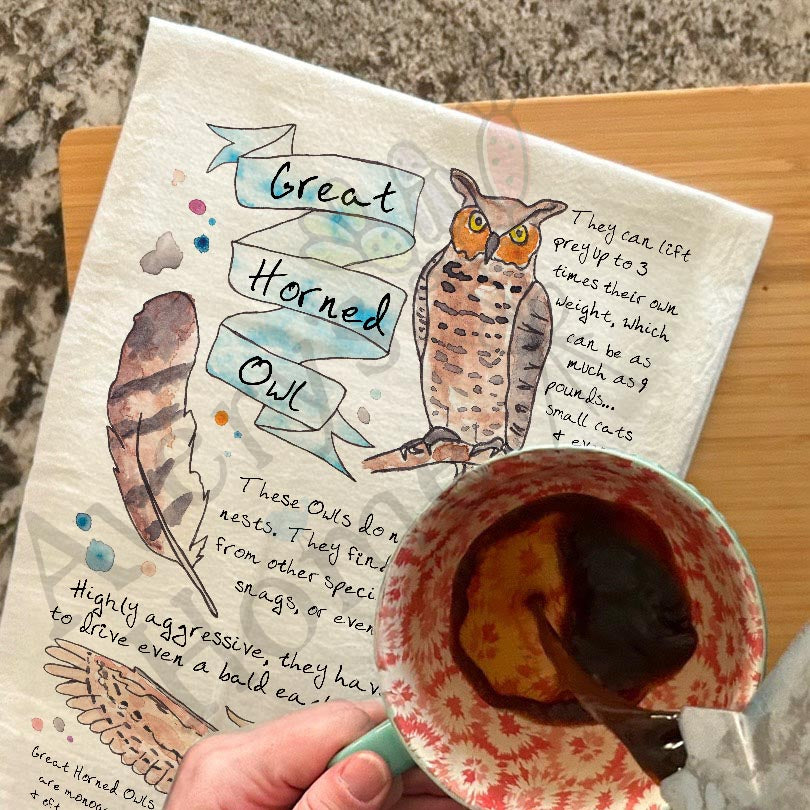 Great
Horned
Owl
They can lift
prey up to 3
times their own
weight, which
can be as
much as 9
pounds...
small cats
+
These Owls do
nests. They find
from other
snags, or even
Highly aggressive, they have
to drive even a bald
Great Horned Owls
are
+
Avery's
Home